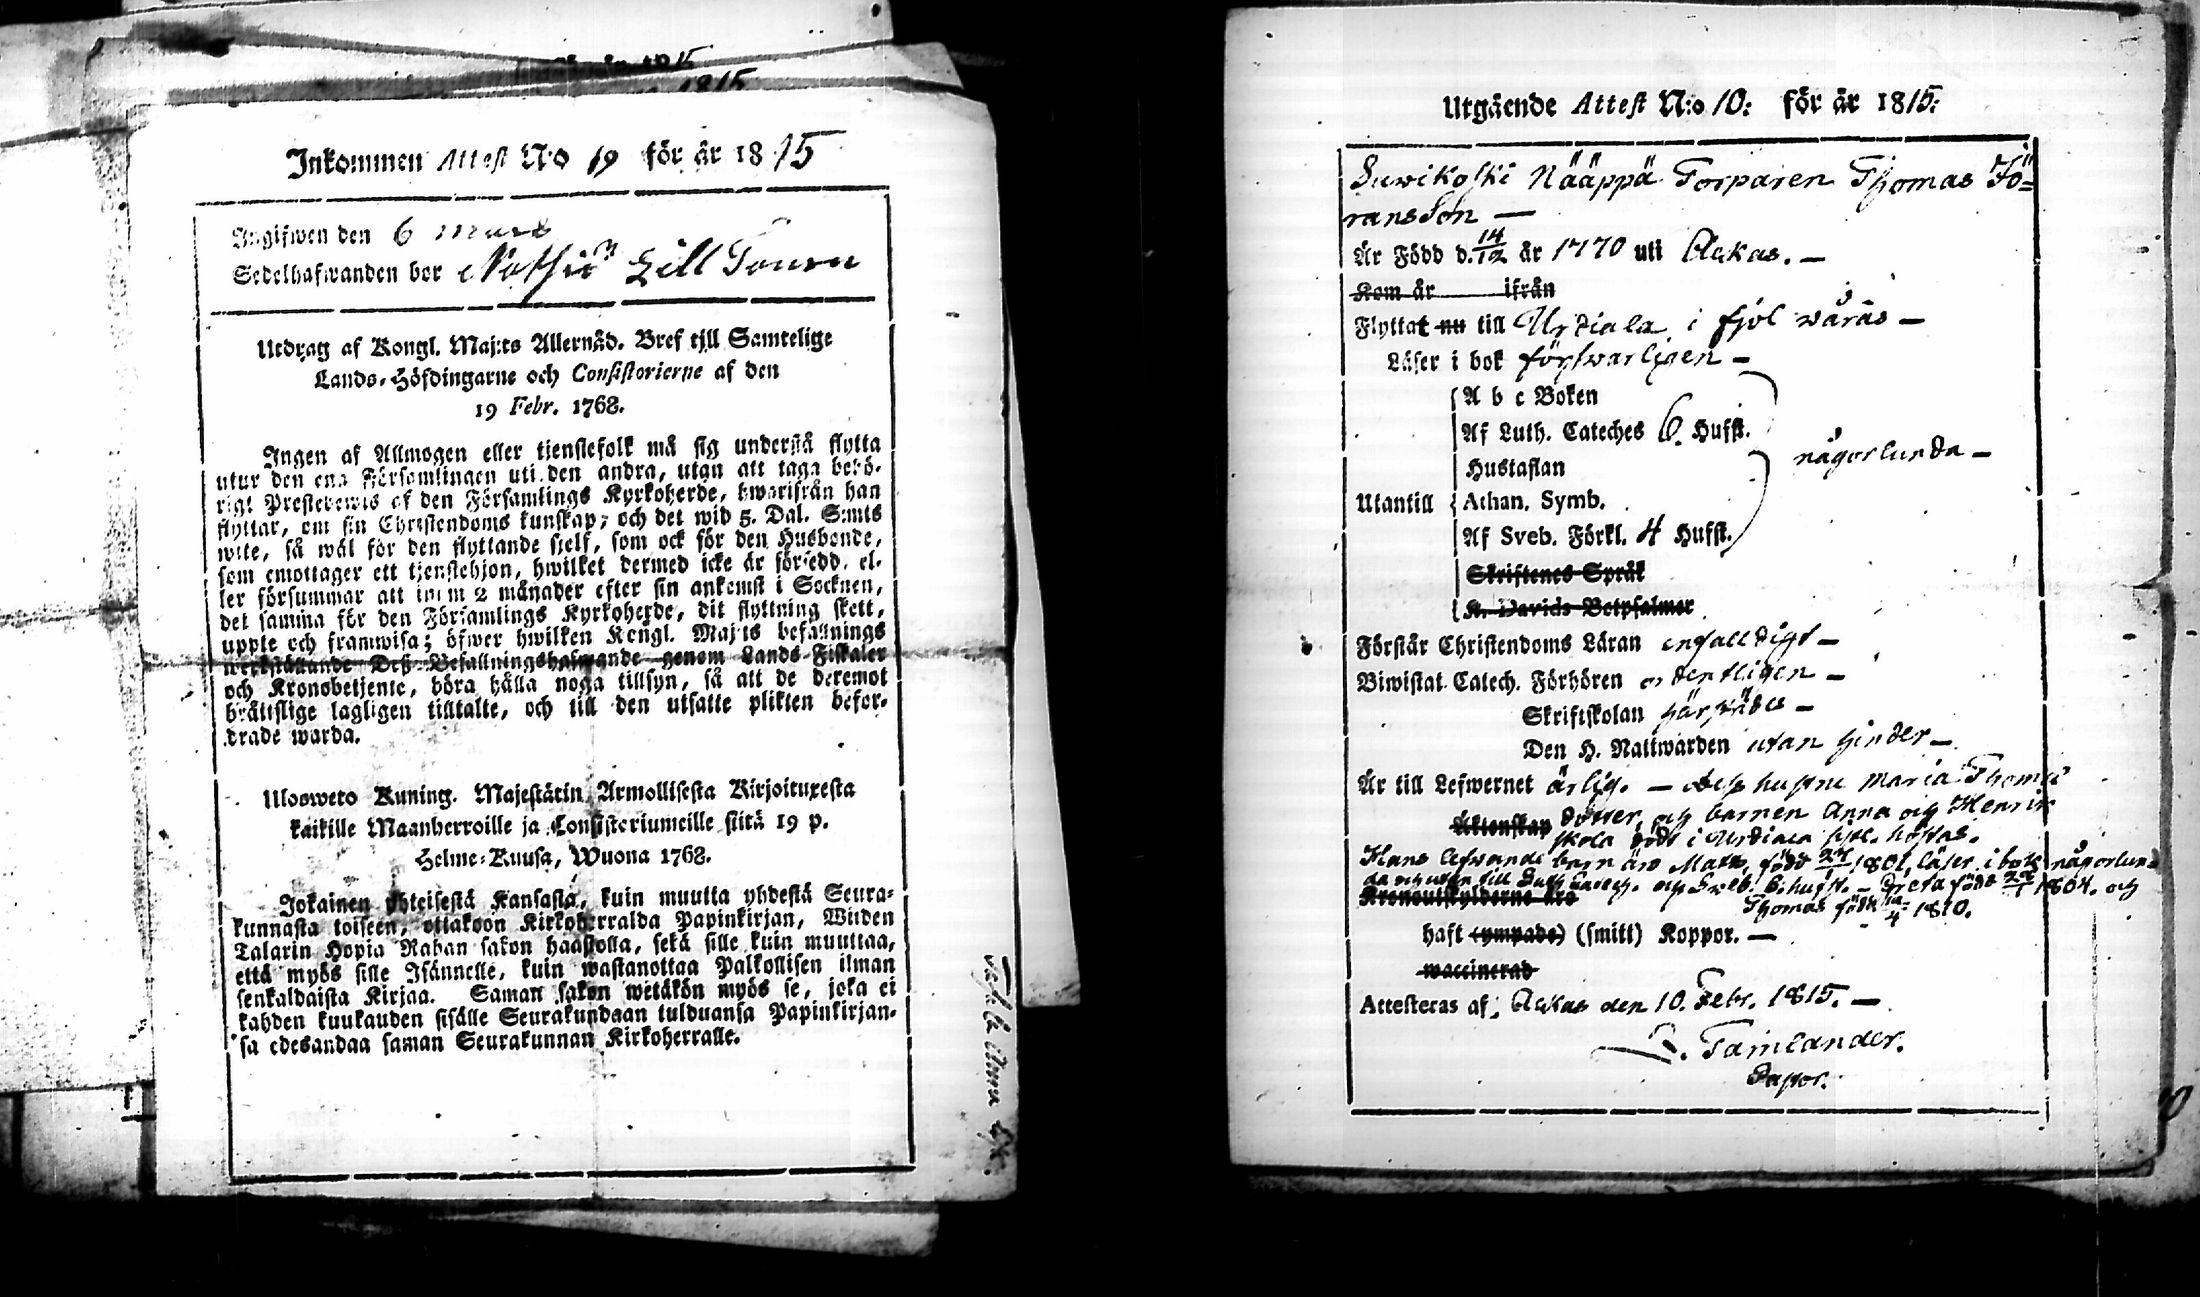 1815
Inkommen Attest N:o 19 för år 1815
Angifwen den 6 Mars
Sedelhafwanden bor Lill
Utdrag af Kongl. Maj:ts Allernåd. Bref till Samtelige
Lands-Höfdingarne och Consistorierne af den
19 Febr. 1768.
Ingen af Allmogen eller tjenstefolk må sig understå flytta
utur den ena Församlingen uti den andra, utan att taga behö-
rigt Prestebewis af den Församlings Kyrkoherde, hwarifrån han
flyttar, om sin Christendoms kunskap; och det wid 5. Dal. S:mts
wite, så wäl för den flyttande sjelf, som ock för den Husbonde,
som emottager ett tjenstehjon, hwilket dermed icke är försedd, el-
ler försummar att inom 2 månader efter sin ankomst i Socknen,
det samma för den Församlings Kyrkoherde, dit flyttning skett,
uppte och framwisa; öfwer hwilken Kongl. Maj:ts befallnings
werkställande Deß Befallningshafwande genom Lands-Fiskaler
och Kronobetjente, böra hålla noga tillsyn, så att de deremot
bråttslige lagligen tilltalte, och till den utsatte plikten befor-
drade warda.
Ulosweto Kuning. Majestätin Armollisesta Kirjoituxesta
kaikille Maanherroille ja Consistoriumeille siitä 19 p.
Helme-Kuusa, Wuona 1768.
Jokainen yhteisestä Kansasta, kuin muutta yhdestä Seura-
kunnasta toiseen, ottakoon Kirkoherralda Papinkirjan, Wiiden
Talarin Hopia Rahan sakon haastolla, sekä sille kuin muuttaa,
että myös sille Isännelle, kuin wastanottaa Palkollisen ilman
senkaldaista Kirjaa. Saman sakon wetäkön myös se, joka ei
kahden kuukauden sisälle Seurakundaan tulduansa Papinkirjan-
sa edesandaa saman Seurakunnan Kirkoherralle.
Utgående Attest N:o 10: för år 1815:
Suwikoski Nääppä Torparen Thomas Jö=
ransson —
Är Född d. 14/12 år 1770 uti Ackas. —
Kom år ifrån
Flyttat nu till Urdiala i fjol wåras —
Läser i bok förswarligen —
A b c Boken
Af Luth. Cateches 6. Hufst.
Hustaflan
någorlunda —
Utantill Athan. Symb.
Af Sveb. Förkl. 4 Hufst.
Skriftenes Språk
K. Davids Botpsalmer
Förstår Christendoms Läran enfalldigt —
Biwistat Catech. Förhören ordentligen —
Skriftskolan härstädes —
Den H. Nattwarden utan hinder —
Är till Lefwernet ärlig. — deß hustru Maria Thomæ
Äktenskap dotter, och barnen Anna och Henrik
skola dödt i Urdiala sistl. höstas.
Hans lefwande barn äro Matts, född 24/ 1801, läser i bok någorlun-
da och utan till Luth. Catech. och Sveb. 6. hufst. — Greta född 1804. och
Kronoutskylderne äro Thomas född /4 1810.
haft (ympade) (smitt) Koppor. —
waccinerad
Attesteras af; Ackas den 10. Febr. 1815. —
Tamlander.
Pastor.